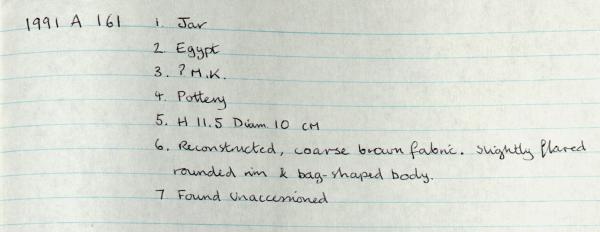 1991 A 161 1. Jar
2. Egypt
3. ? M.K.
4. Pottery
5. H 11.5 Diam. 10 CM
6. Reconstructed, coarse brown fabric. Slightly flared
rounded rim & bag-shaped body.
7 Found Unaccessioned